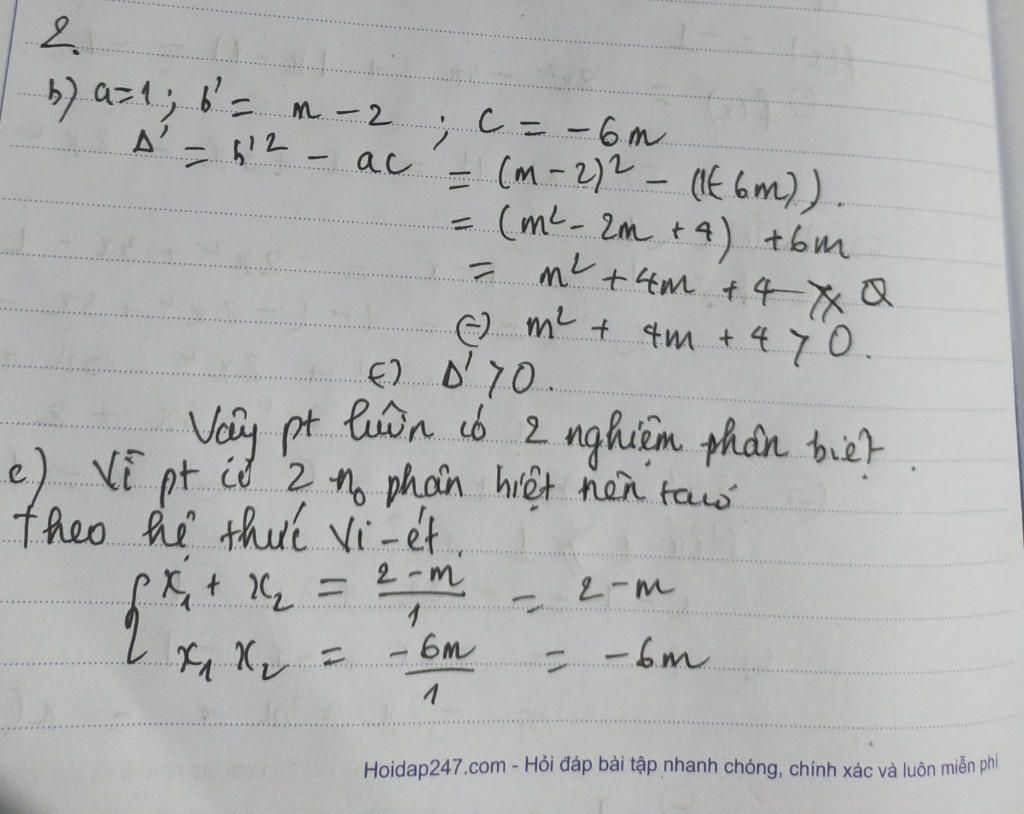 2.
b) a=1; b' = m - 2 ; c = -6m
Δ' = b'² - ac = (m-2)² - (1(-6m)).
= (m² - 2m + 4) + 6m
= m² + 4m + 4
(=) m² + 4m + 4 > 0.
(=) Δ' > 0.
Vậy pt luôn có 2 nghiệm phân biệt.
c) Vì pt có 2 no phân biệt nên ta có
Theo hệ thức Vi-ét.
x₁ + x₂ = (2-m)/1 = 2-m
x₁ x₂ = -6m/1 = -6m
Hoidap247.com - Hỏi đáp bài tập nhanh chóng, chính xác và luôn miễn phí